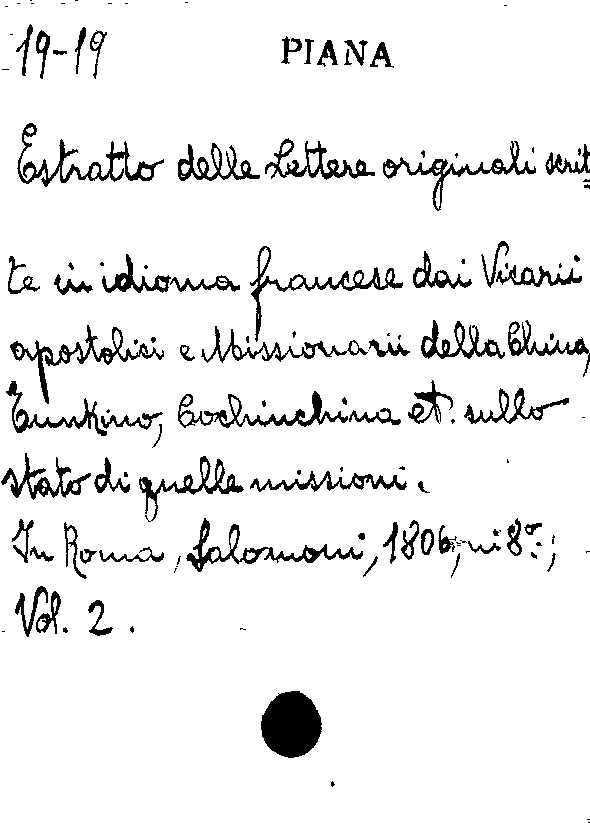 19-19 PIANA
Estratto delle Lettere originali scrit=
te in idioma francese dai Vicarii
apostolici e Missionarii della China,
Tunkino, Cochinchina et. sullo
stato di quelle missioni.
In Roma, Salomoni, 1806, in 8º.;
Vol. 2.